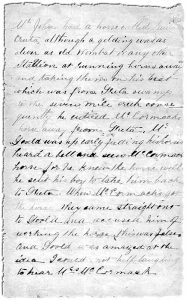 Mr John had a horse called
Creta, although a gelding was as
clever as old Wombat or any other
Stallion at running horses away
and taking them on his beat
which was from Theta swamp
to the seven mile creek conse
quently he enticed McCormacks
horse away from Theta. Mr
Gould was up early finding his horses
heard a bell and seen McCormack
horse for he knew the horse well
he sent his boy to take him back
to Theta. When McCormacks got
he came straight out
to Gould and accused him of
working the horse this was false
and Gould was amazed at the
idea I could not help laughing
to hear Mrs McCormack